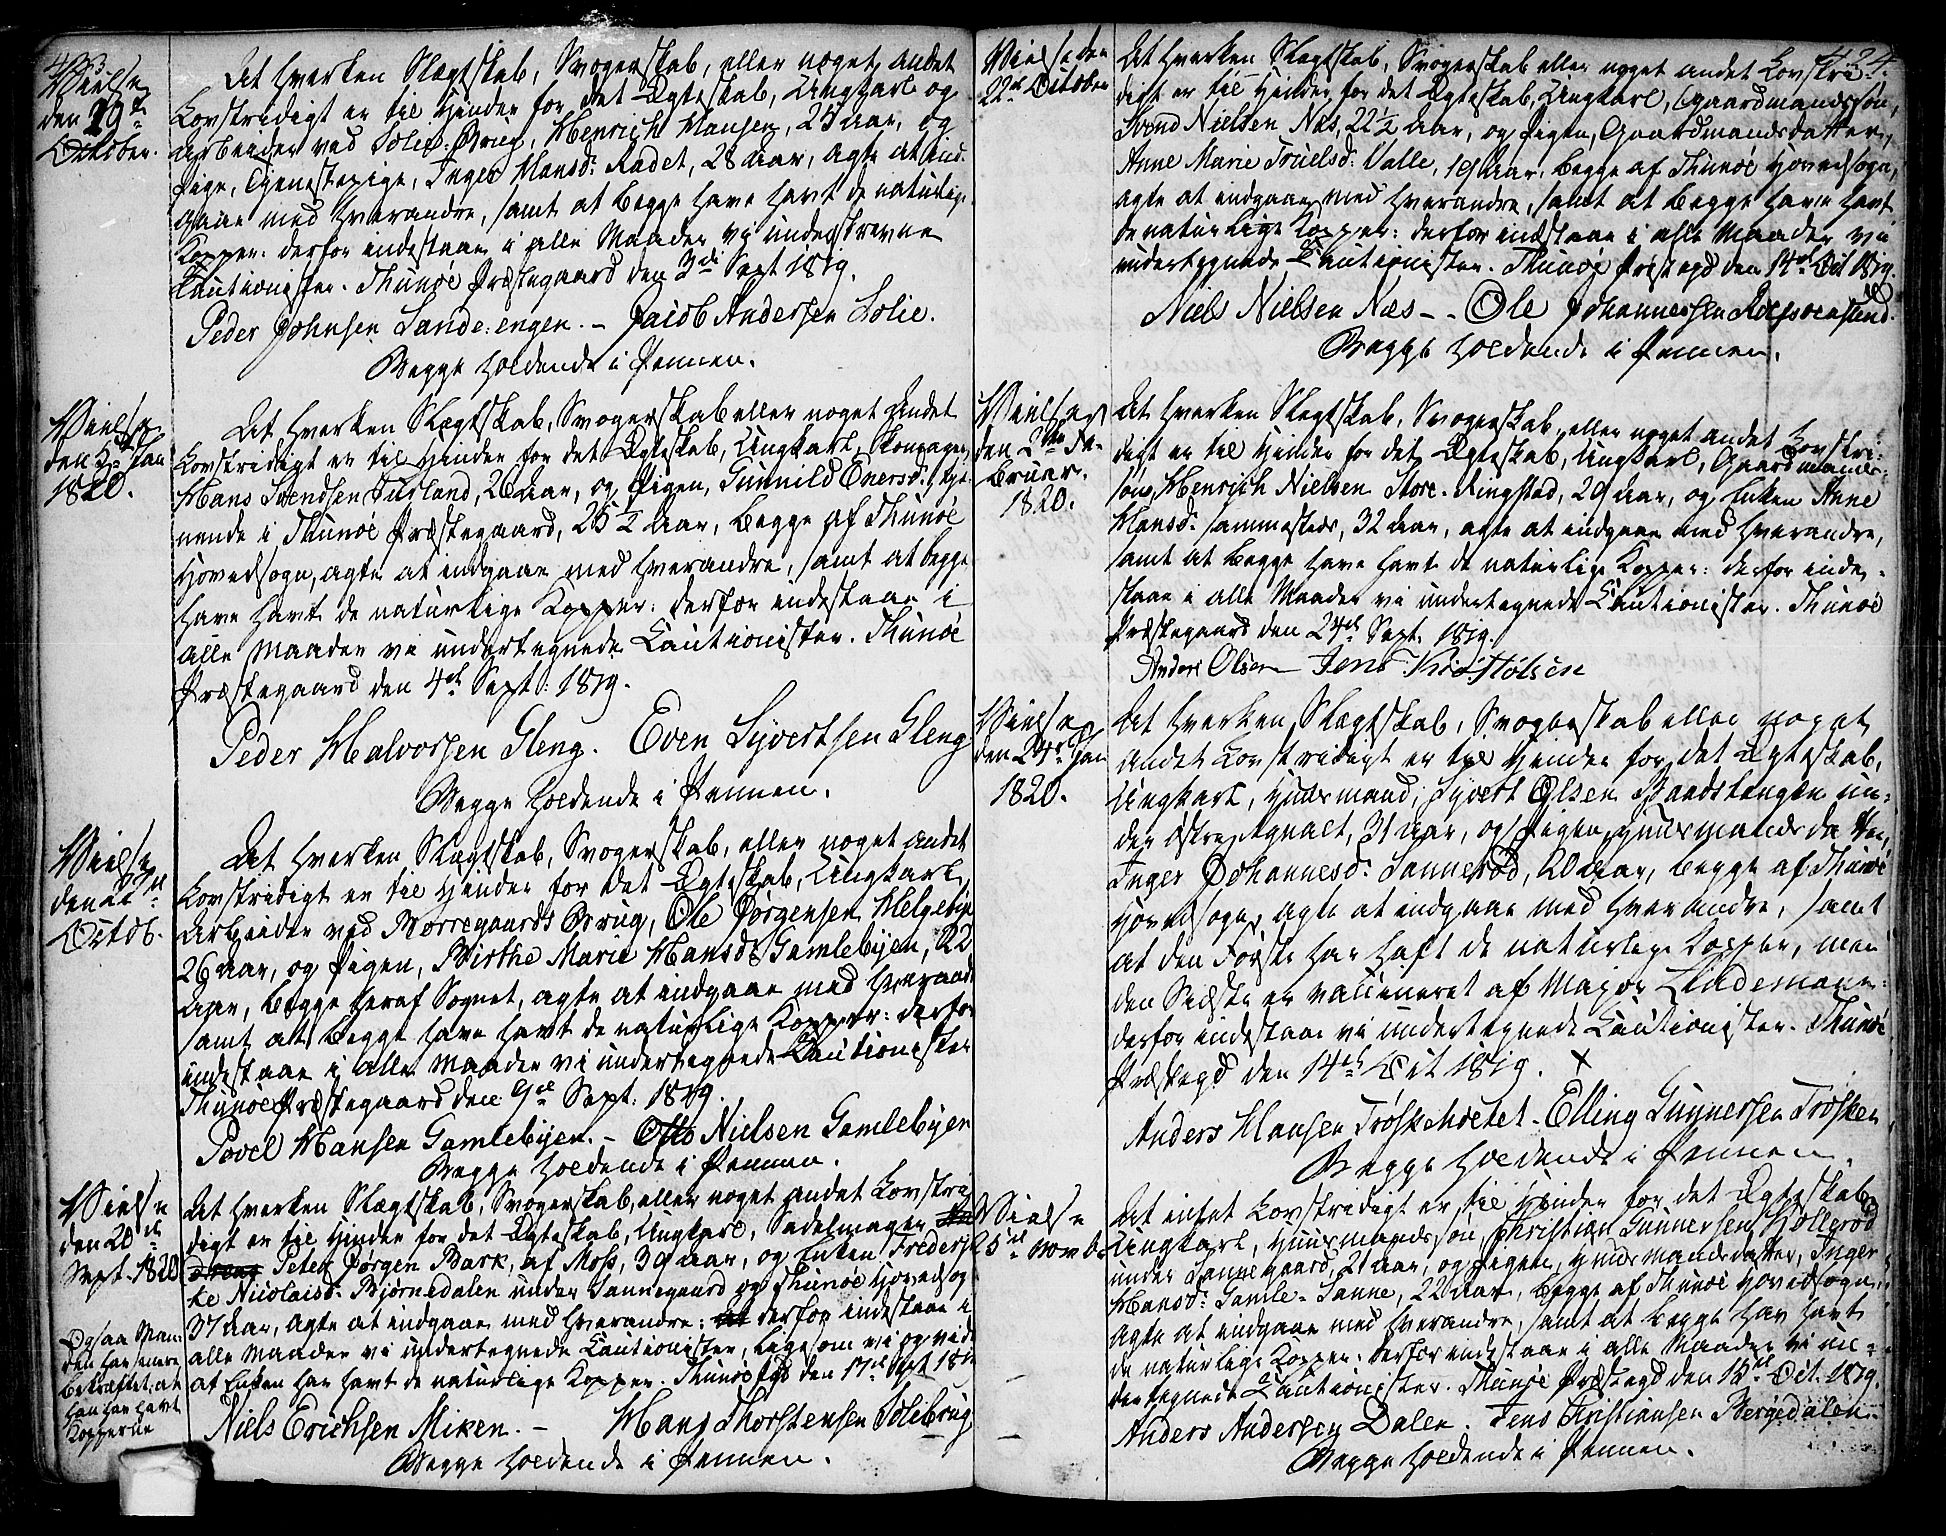 433
Vielse
den 19de
October.
At hverken Slægtskab, Svogerskab, eller noget andet
Lovstridigt er til Hinder for det Ægteskab, Ungkarl og
Arbeider ved Solie-Brug, Henrich Hansen, 25 Aar, og
Pige, Tjenestepige, Inger Hansd: Rødet, 28 Aar, agte at ind-
gaae med hverandre, samt at begge have havt de naturlige
Kopper: derfor indestaae i alle Maader vi underskrevne
Cautionister. Thunøe Præstegaard den 3di Sept 1819.
Peder Johnsen Sande-engen. – Jacob Andersen Solie.
Begge holdende i Pennen.
Vielse
den Jan
1820.
At hverken Slægtskab, Svogerskab eller noget Andet
Lovstridigt er til Hinder for det Ægteskab, Ungkarl, Skomager
Hans Svendsen Furland, 26 Aar, og Pigen, Gunnild Enersd:, tje-
nende i Thunøe Præstegaard, 25 1/2 Aar, begge af Thunøe
Hovedsogn, agte at indgaae med hverandre, samt at begge
have havt de naturlige Kopper: derfor indestaae i
alle Maader vi undertegnede Cautionister. Thunøe
Præstegaard den 4de Sept: 1819.
Peder Halvorsen Gleng. Even Syvertsen Gleng
Begge holdende i Pennen.
Vielse
den 22de
Octob.
At hverken Slægtskab, Svogerskab, eller noget andet
Lovstridigt er til Hinder for det Ægteskab, Ungkarl,
Arbeider ved Børregaards Brug, Ole Jørgensen Helgebye
26 Aar, og Pigen, Birthe Marie Hansd: Gamlebyen, 22
Aar, begge heraf Sognet, agte at indgaae med hverand:
samt at begge have havt de naturlige Kopper: derfor
indestaae i alle Maader vi undertegnede Cautionister
Thunøe Præstegaard den 9de Sept: 1819.
Povel Hansen Gamlebyen. – Otto Nielsen Gamlebyen
Begge holdende i Pennen.
Vielse
den 20de
Sept. 1820
At hverken Slægtskab, Svogerskab, eller noget andet Lovstri
digt er til Hinder for det Ægteskab, Ungkarl, Sadelmager
Peter Jørgen Bark, af Moss, 39 Aar, og Enken Frederik
ke Nicolaisd: Bjørnedalen under Sannegaard og Thunøe Hovedsog
37 Aar, agte at indgaae med hverandre: derfor indestaae i
alle Maader vi undertegnede Cautionister, ligesom vi og vide
at Enken har havt de naturlige Kopper. Thunøe Pgd den 17de Sept 1819
Niels Erichsen Miken. – Hans Thorstensen Soliebrug
Begge holdende i Pennen.
Ogsaa Man-
den har senere
bekræftet, at
han har havt
Kopperne
434.
Vielse den
22de October
At hverken Slægtskab, Svogerskab eller noget andet Lovstri-
digt er til Hinder for det Ægteskab, Ungkarl, Gaardmandssøn,
Svend Nielsen Næs, 22 1/2 Aar, og Pigen, Gaardmandsdatter,
Anne Marie Truelsd: Valle, 19 Aar, begge af Thunøe Hovedsogn,
agte at indgaae med hverandre, samt at begge have havt
de naturlige Kopper: derfor indestaae i alle Maader vi
undertegnede Cautionister. Thunøe Præstegd den 14de Oct 1819.
Niels Nielsen Næs – – Ole Johannessen
Begge holdende i Pennen.
Vielse
den 2den Fe-
bruar.
1820.
At hverken Slægtskab, Svogerskab, eller noget andet Lovstri-
digt er til Hinder for det Ægteskab, Ungkarl, Gaardmands-
søn, Henrich Nielsen Store-Ringstad, 29 Aar, og Enken Anne
Hansd: sammesteds, 32 Aar, agte at indgaae med hverandre,
samt at begge have havt de naturlige Kopper: derfor inde-
staae i alle Maader vi undertegnede Cautionister. Thunøe
Præstegaard den 24de Sept. 1819.
Anders Olsen Jens Kristofersen
Vielse
den 24de Jan
1820.
At hverken Slægtskab, Svogerskab eller noget
andet Lovstridigt er til Hinder for det Ægteskab,
Ungkarl, Huusmand, Syvert Olsen Baadstangen un-
der Østre Agnalt, 31 Aar, og Pigen, Huusmandsdatter,
Inger Johannesd: Sannerød, 20 Aar, begge af Thunøe
Hovedsogn, agte at indgaae med hverandre, samt
at den Første har haft de naturlige Kopper, men
den Sidste er vaccineret af Major Lindemann:
derfor indestaae vi undertegnede Cautionister. Thunøe
Præstegd den 14de Oct 1819. X
Anders Hansen Trøskeholtet – Elling Gunnersen Trøsken
Begge holdende i Pennen.
Vielse
25de Novbr
At intet Lovstridigt er til Hinder for det Ægteskab,
Ungkarl, Huusmandssøn, Christian Gunnersen Hollerød
under Sannegaard, 21 Aar, og Pigen, Huusmandsdatter, Inger
Hansd: Gamle-Sanne, 22 Aar, begge af Thunøe Hovedsogn,
agte at indgaae med hverandre, samt at begge hav havt
de naturlige Kopper: derfor indestaae i alle Maader vi un-
dertegnede Cautionister. Thunøe Præstegd den 15de Oct. 1819.
Anders Andersen Dalen. Jens Christiansen Bergedalen
Begge holdende i Pennen.